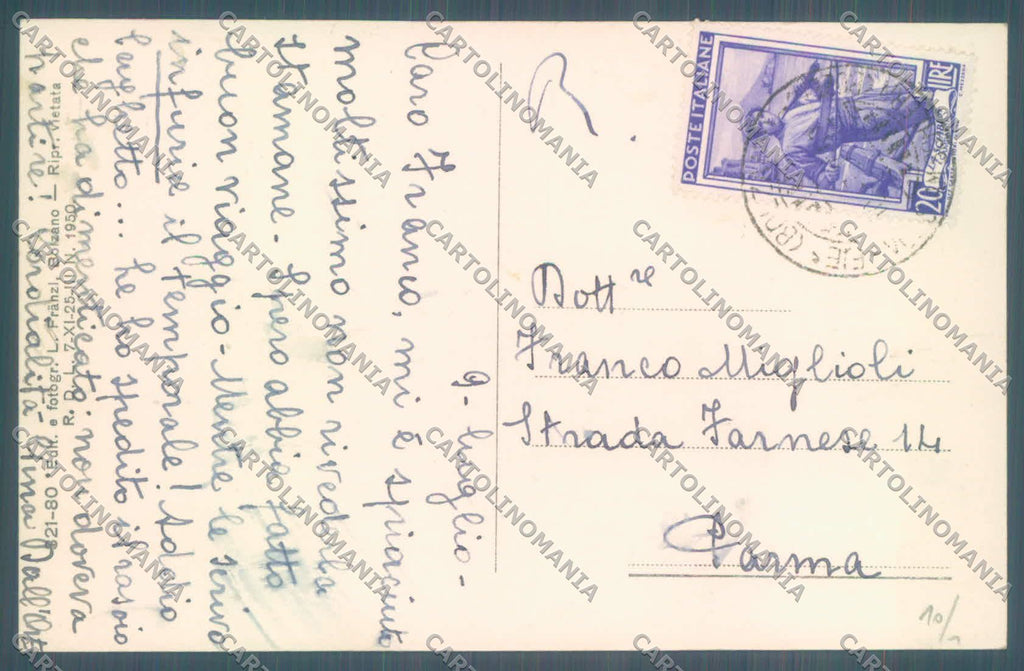 9 - luglio -
Caro Franco, mi è spiaciuto
moltissimo non rivederla
stamane. Spero abbia fatto
buon viaggio. Mentre le scrivo
infuria il temporale! Adagio
le ho spedito il rasoio
che ha dimenticato, non doveva
Cordialità Anna
821-80 Edit. e fotogr. L. Fränzl, Bolzano - Ripr. vietata
R. D. L. 7-XI-25-III N. 1950
POSTE ITALIANE
LIRE
20
Dott.re
Franco Miglioli
Strada Farnese 14
Parma
10/
CARTOLINOMANIA